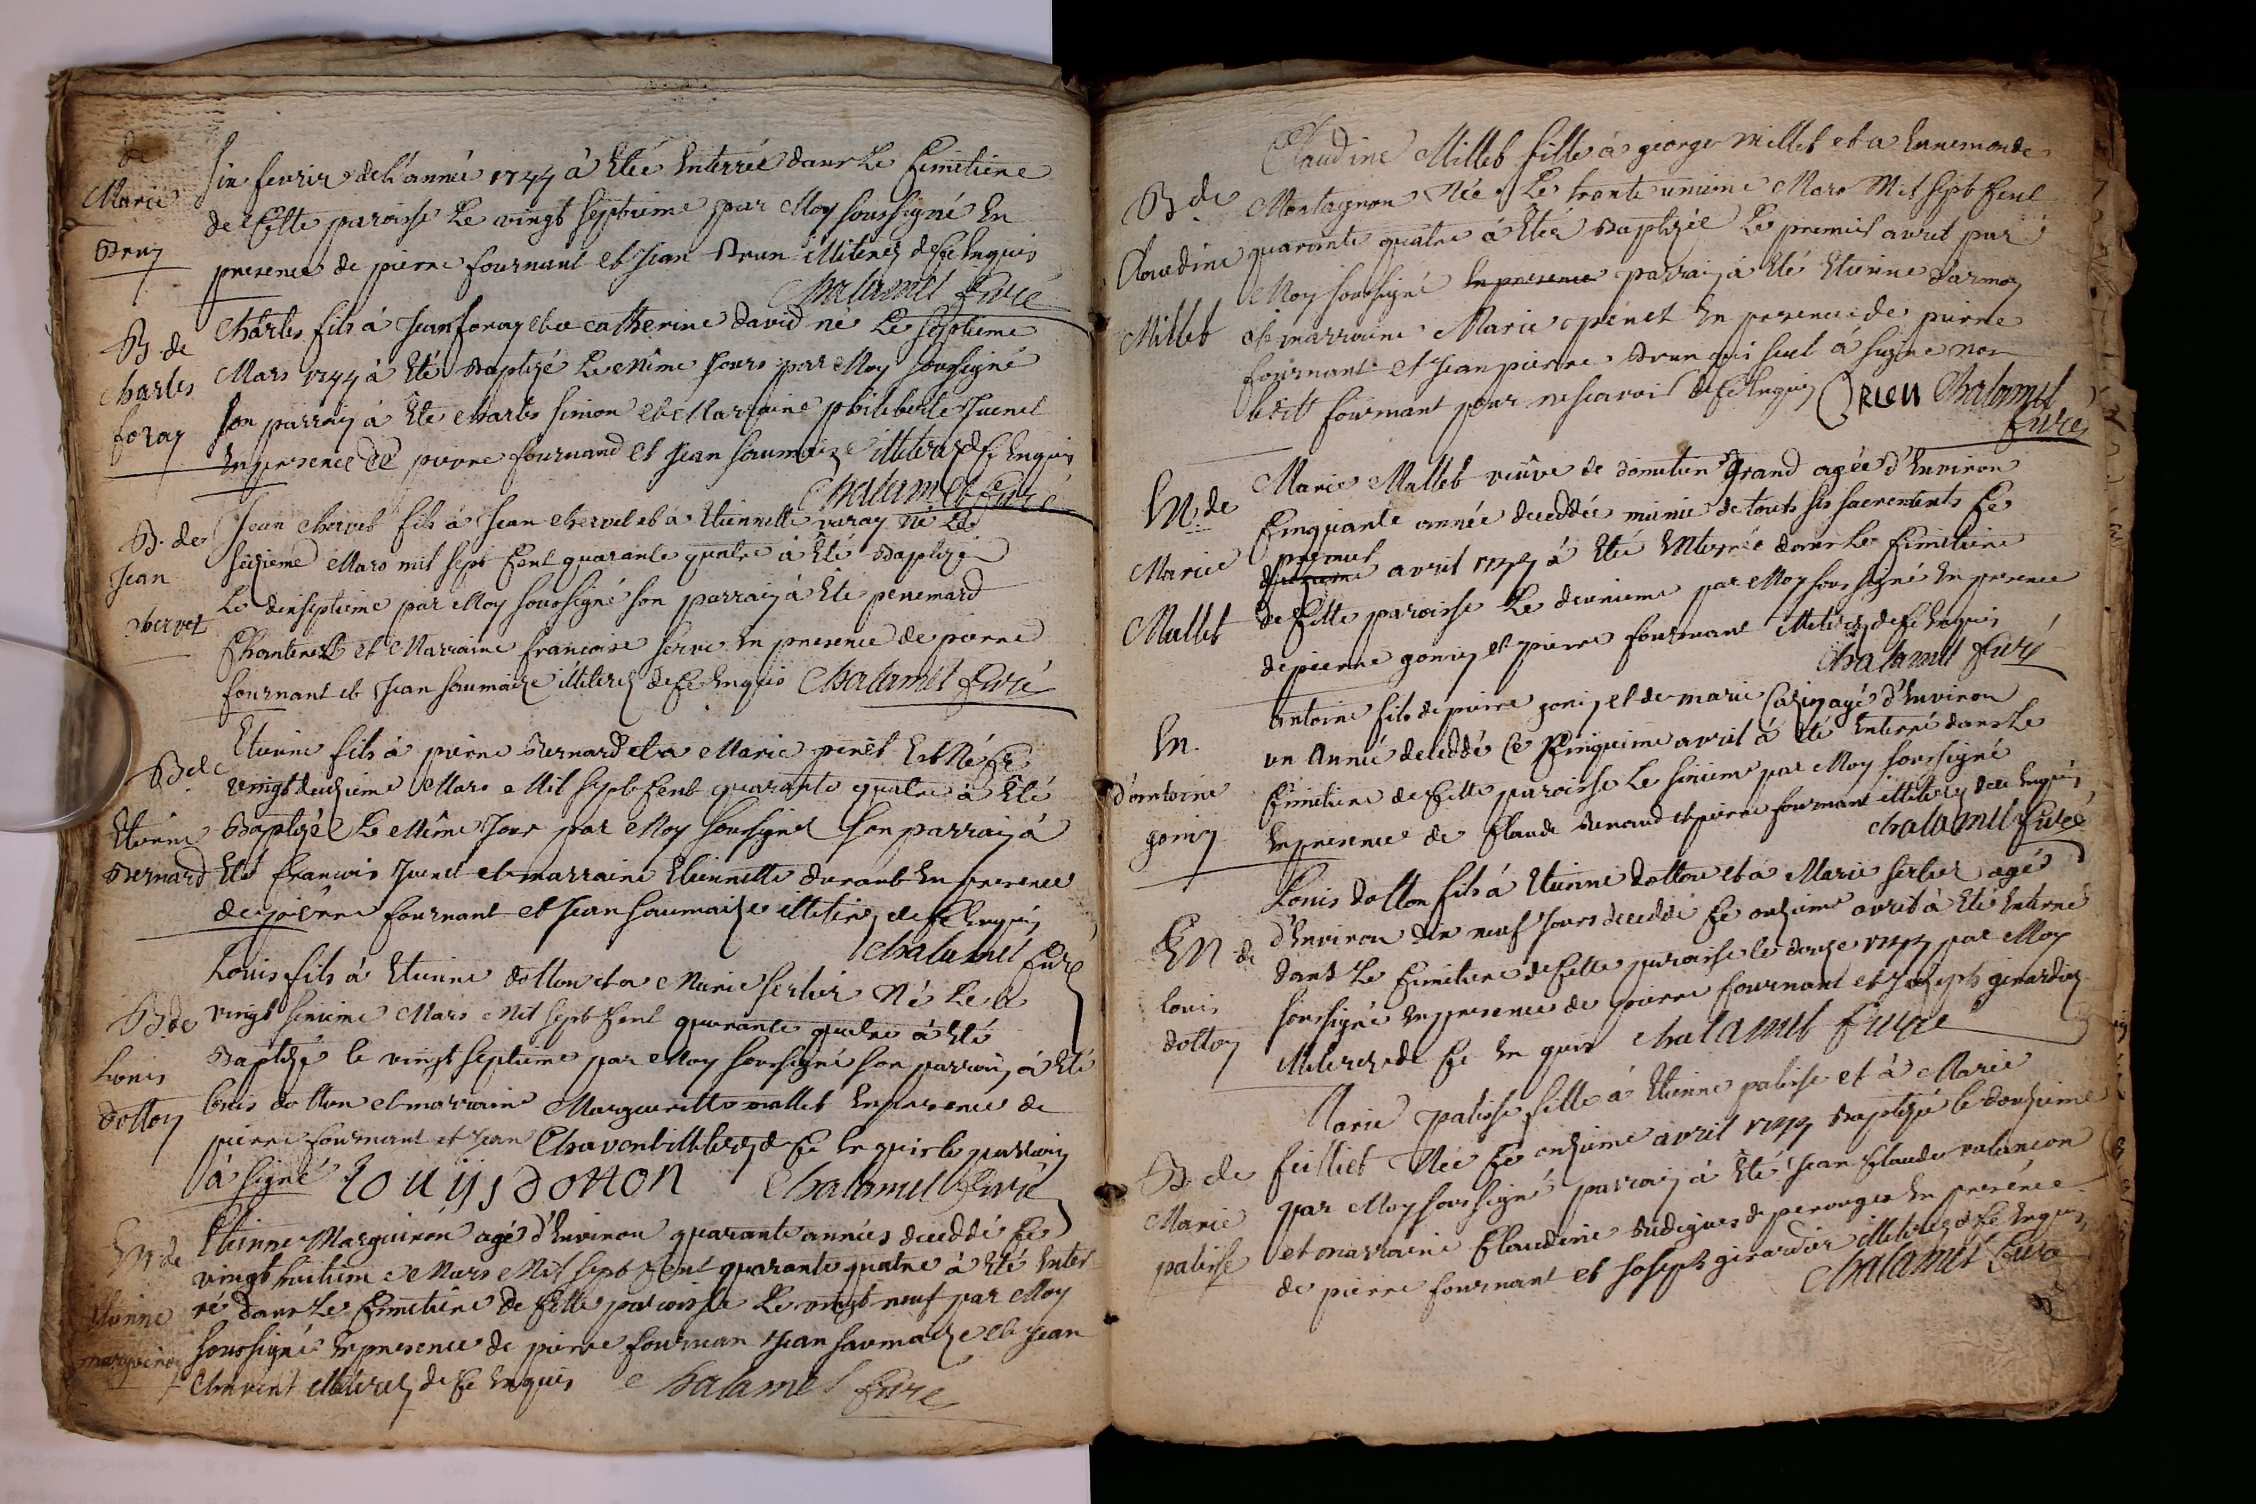 de
Marie
Brun
six fevrier de l'année 1744 à Eté Enterrée dans Le Cimetiere
de Cette paroisse Le vingt septieme par Moy soussigné En
presence de pierre fournant et Jean Brun illiterez de Ce Enquis
Chalamel Curé
B de
Charles
foray
Charles fils à Jean foray et a catherine david né Le septieme
Mars 1744 à Eté Baptizé Le Même Jours par Moy soussigné
son parrain à Ete charles simon et Marraine philiberte Juenet
En presence de pierre fournand et Jean saumaize illiterez de Ce Enquis
Chalamel Curé
B. de
Jean
chervet
Jean chervet fils à Jean chervet et à Etiennette varay né Le
seizieme Mars mil sept Cent quarante quatre à Eté Baptizé
Le dixseptieme par Moy soussigné son parrain à Ete
et Marraine francoise serve En presence de pierre
fournant et Jean saumaize illiterez de Ce Enquis Chalamel Curé
B de
Etienne
Bernard
Etienne fils à pierre Bernard et a Marie penet Est Né Ce
vingt deuzieme Mars Mil sept Cent quarante quatre à Eté
Baptizé Le Même Jour par Moy soussigné son parrain à
Eté francois Juenet et marraine Etiennette durant En presence
de pierre fournant et Jean saumaize illiterez de Ce Enquis
Chalamel Curé
B de
Louis
dotton
Louis fils à Etienne dotton et a Marie sertier Né Le
vingt sixieme Mars Mil sept Cent quarante quatre à Eté
Baptizé le vingt septieme par Moy soussigné son parrain à Eté
louis dotton et marraine Margueritte mallet En presence de
pierre fournant et Jean Chavent illiterez de Ce Enquis le parrain
à signé louijs dotton Chalamel Curé
En de
Etienne
marguiron
Etienne Marguiron agé d'Environ quarante années deceddé Ce
vingt huitiem Mars Mil sept Cent quarante quatre à Eté Enter
ré dans Le Cimetiere de Cette paroisse Le vingt neuf par Moy
soussigné En presence de pierre fournan Jean saumaize et Jean
Chavent illiterez de Ce Enquis Chalamel Curé
B de
Claudine
Millet
Claudine Millet fille à george millet et a Ennemonde
Montagnon Née Le trente unieme Mars Mil sept Cent
quarante quatre à Eté Baptizée Le premier avril par
Moy soussigné En presence parrain à Eté Etienne darmay
et marraine Marie penet En presence de pierre
fournant et Jean pierre Brun qui seul à signe non
ledit fournant pour ne scavoir de Ce Enquis RIEN Chalamel
Curé
En de
Marie
Mallet
Marie Mallet veuve de grand agée d'Environ
Cinquante année deceddée munie de touts ses sacrements Ce
premier
avril 1744 à Eté Enterrée dans Le Cimetiere
de Cette paroisse Le deuxieme par Moy soussigné En presence
de pierre gonin et pierre fournant illiterez de Ce Enquis
Chalamel Curé
En
d'antoine
gonin
antoine fils de pierre gonin et de marie agé d'Environ
un Année deceddé Ce Cinquieme avril à Eté Enterré dans Le
Cimetiere de Cette paroisse Le sixieme par Moy soussigné
En presence de Claude Renaud et pierre fournant illiterez de Ce Enquis
Chalamel Curé
En de
louis
dotton
Louis dotton fils à Etienne dotton et a Marie sertier agé
d'Environ dix neuf Jours deceddé Ce onzieme avril à Eté Enterré
dans Le Cimetiere de Cette paroisse le douze 1744 par Moy
soussigné En presence de pierre fournant et Joseph girardier
illiterez de Ce En quis Chalamel Curé
B. de
Marie
palisse
Marie palisse fille à Etienne palisse et à Marie
feilliet Née Ce onzieme avril 1744 Baptizé le douzieme
par Moy soussigné parrain à Eté Jean Claude valancon
et marraine Claudine de perouges En presence
de pierre fournant et Joseph girardier illiterez de Ce Enquis
Chalamel Curé